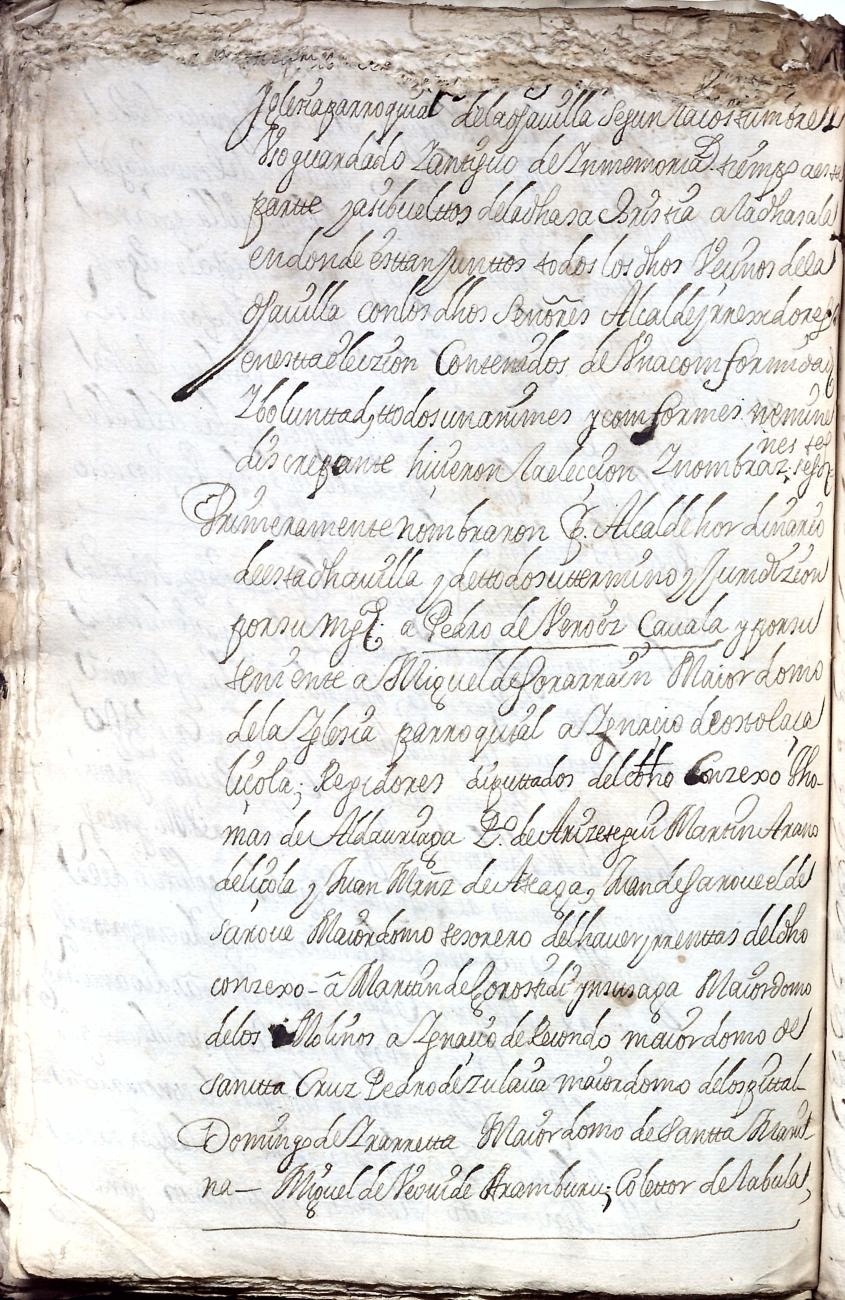 Iglesia parroquial dela dha villa segun la costumbre
Uso guardado Zantiguo de Inmemorial tiempo aesta
partte y asibuelttos dela dha sa Cristia a la dha sala
en donde esttan Junttos todos los dhos Vecinos dela
dha villa con los dhos Señores Alcalde y rrexidores
en estta eleczion Contenidos de Una comformidad
Zboluntad, ttodos unanimes y comformes nemine
discrepante hicieron la eleccion Znombraz.
Primeramente nombraron P. Alcalde hordinario
de esta dha villa y de ttodo su ttermino y Juridizion
por su Mgd. a Pedro de Veroiz Cavala y por su
teniente a Miguel de Gorarrain Maiordomo
dela Iglesia parroquial a Ignacio de Costolaca
licola; Regidores diputtados del dho Conzexo Tho-
mas de Aldauriaga Po. de Arizttegui Martin Arano
delicola y Juan Mrnz de Ateaga, Juan de Saroue el de
saroue Maiordomo tesorero del haver y rrenttas del dho
conzexo - a Martin de Gorostidi y nsusaga Maiordomo
delos Molinos a Ignacio de Recondo maiordomo de
santta Cruz Pedro de Zulaica maiordomo delospittal
Domingo de Irarretta Maiordomo de Santta Mari
na— Miguel de Aramburu; Colettor de la bula,